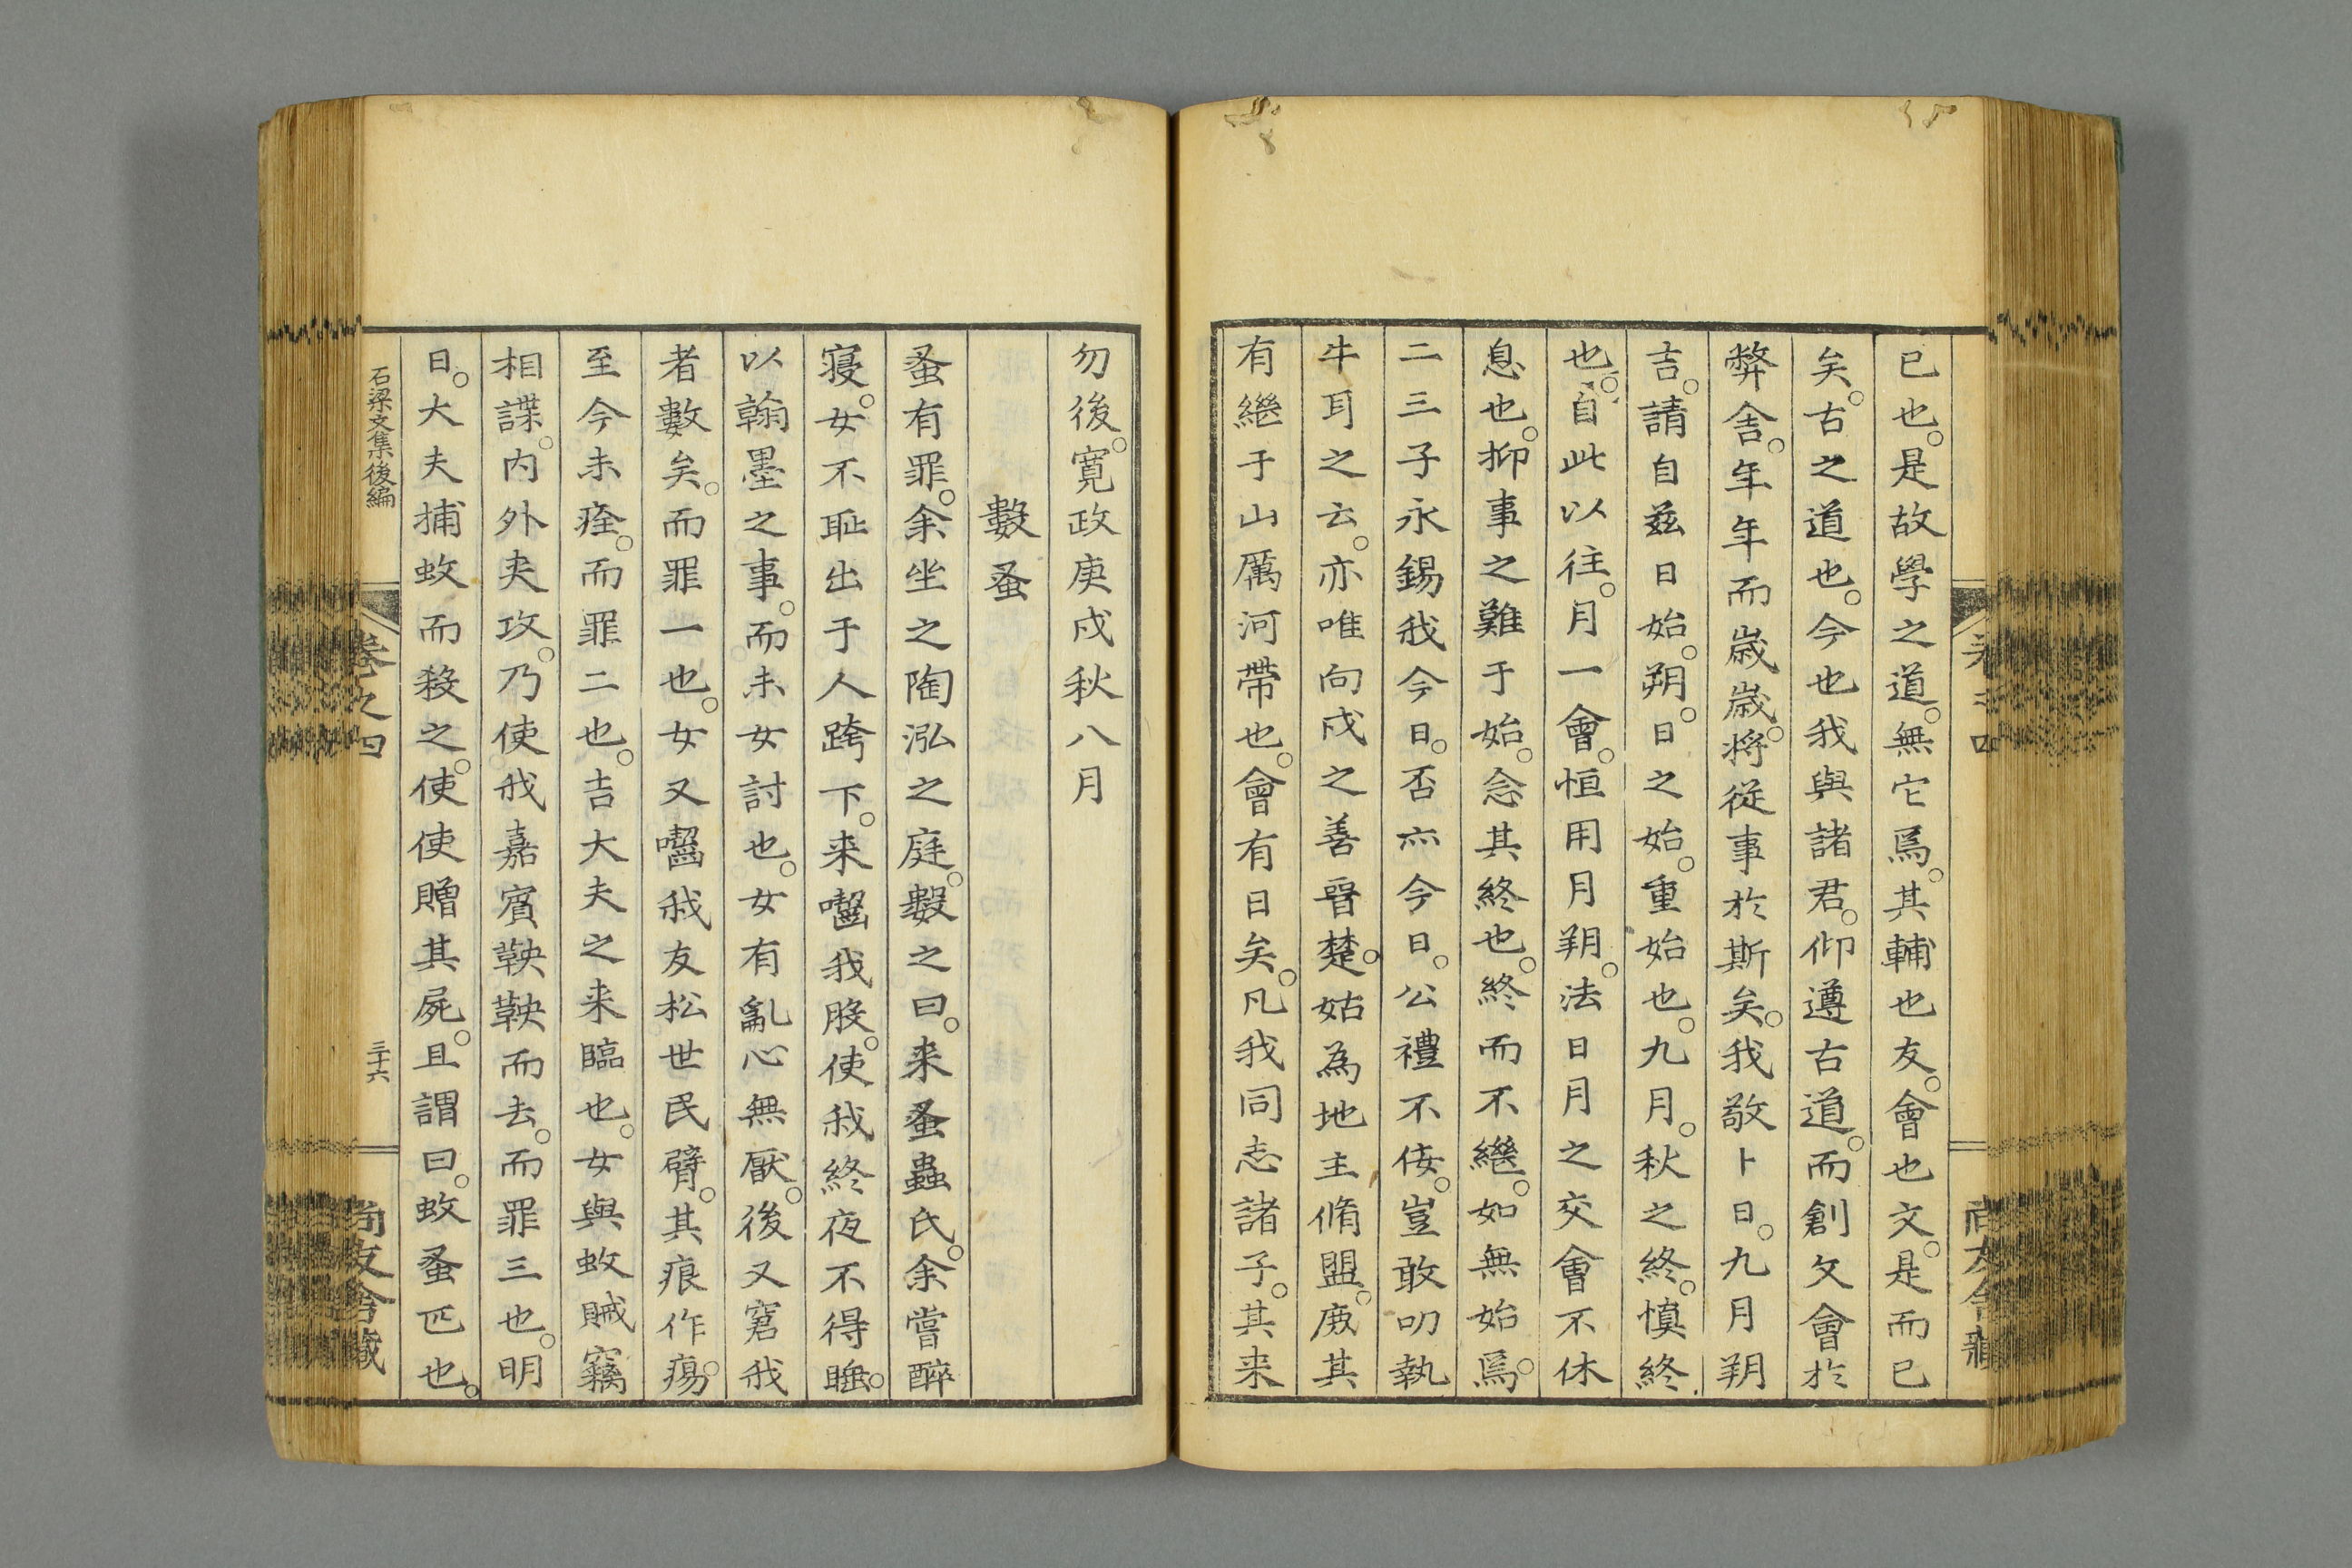 已也。是故學之道。無它焉。其輔也友。會也文。是而已
矣。古之道也。今也我與諸君。仰遵古道。而創文會於
弊舍。年年而歳歳。将從事於斯矣。我敬卜日。九月朔
吉。請自茲日始。朔。日之始。重始也。九月。秋之終。慎終
也。自此以往。月一會。恒用月朔。法日月之交會不休
息也。抑事之難于始。念其終也。終而不繼。如無始焉。
二三子永錫我今日。否亦今日。公禮不佞。豈敢叨執
牛耳之云。亦唯向戌之善晉楚。姑為地主脩盟。庻其
有繼于山厲河帶也。會有日矣。凡我同志諸子。其来
勿後。寛政庚戌秋八月
數蚤
蚤有罪。余坐之陶泓之庭。數之曰。来蚤蟲氏。余嘗醉
寝。女不耻出于人跨下。来囓我股。使我終夜不得睡。
以翰墨之事。而未女討也。女有亂心無厭。後又窘我
者數矣。而罪一也。女又囓我友松世民臂。其痕作瘍。
至今未痊。而罪二也。吉大夫之来臨也。女與蚊賊竊
相諜。内外夾攻。乃使我嘉賓鞅鞅而去。而罪三也。明
日。大夫捕蚊而殺之。使使贈其屍。且謂曰。蚊蚤匹也。
石梁文集後編
卷之四
三十六
尚友舎藏